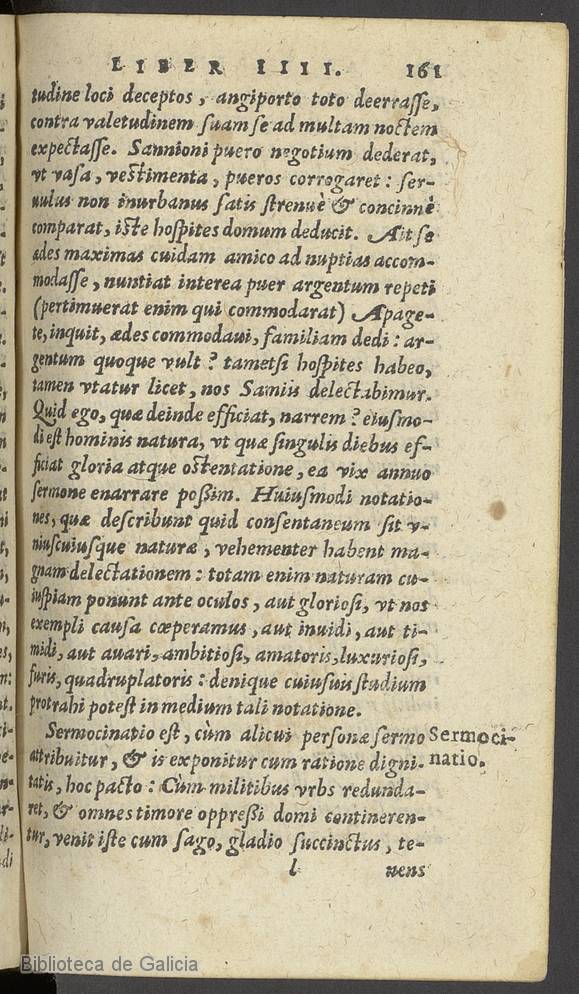 LIBER IIII. 161
tudine loci deceptos, angiporto toto deerrasse,
contra valetudinem suam se ad multam noctem
expectasse. Sannioni puero negotium dederat,
vt vasa, vestimenta, pueros corrogaret: ser-
uulus non inurbanus satis strenuè & concinnè
comparat, iste hospites domum deducit. Ait se
ædes maximas cuidam amico ad nuptias accom-
modasse, nuntiat interea puer argentum repeti
(pertimuerat enim qui commodarat) Apage-
te, inquit, ædes commodaui, familiam dedi: ar-
gentum quoque vult? tametsi hospites habeo,
tamen vtatur licet, nos Samiis delectabimur.
Quid ego, quæ deinde efficiat, narrem? eiusmo-
di est hominis natura, vt quæ singulis diebus ef-
ficiat gloria atque ostentatione, ea vix annuo
sermone enarrare possim. Huiusmodi notatio-
nes, quæ describunt quid consentaneum sit v-
niuscuiusque naturæ, vehementer habent ma-
gnam delectationem: totam enim naturam cu-
iuspiam ponunt ante oculos, aut gloriosi, vt nos
exempli causa cœperamus, aut inuidi, aut ti-
midi, aut auari, ambitiosi, amatoris, luxuriosi,
furis, quadruplatoris: denique cuiusuis studium
protrahi potest in medium tali notatione.
Sermocinatio est, cùm alicui personæ sermo Sermoci-
attribuitur, & is exponitur cum ratione digni- natio.
tatis, hoc pacto: Cùm militibus vrbs redunda-
ret, & omnes timore oppressi domi contineren-
tur, venit iste cum sago, gladio succinctus, te-
l nens
Biblioteca de Galicia